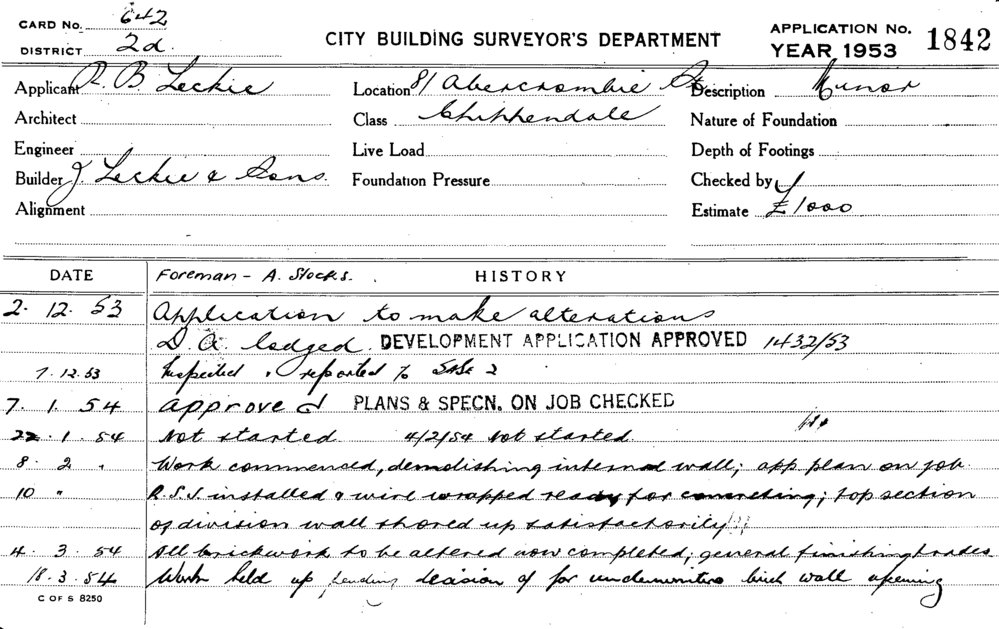 CARD No. 642
DISTRICT 2d.
CITY BUILDING SURVEYOR'S DEPARTMENT
APPLICATION No.
YEAR 1953
1842
Applicant R. B. Leckie Location 81 Abercrombie St. Description Minor
Architect Class Chippendale Nature of Foundation
Engineer Live Load Depth of Footings
Builder J. Leckie & Sons. Foundation Pressure Checked by
Alignment Estimate £1000
DATE Foreman - A. Stocks. HISTORY
2. 12. 53 Application to make alterations
D. A. lodged. DEVELOPMENT APPLICATION APPROVED 1432/53
7.12.53 Inspected & reported to
7. 1. 54 approved PLANS & SPECN. ON JOB CHECKED
22. 1. 54 Not started. 4/2/54 Not started.
8. 2 " Work commenced, demolishing internal wall; app plan on job.
10 " R.S.J. installed & wire wrapped ready for concreting; top section
of division wall shored up satisfactorily
4. 3. 54 All brickwork to be altered now completed; general finishing trades
18.3.54 Work held up pending decision of for underwriters brick wall opening
C OF S 8250